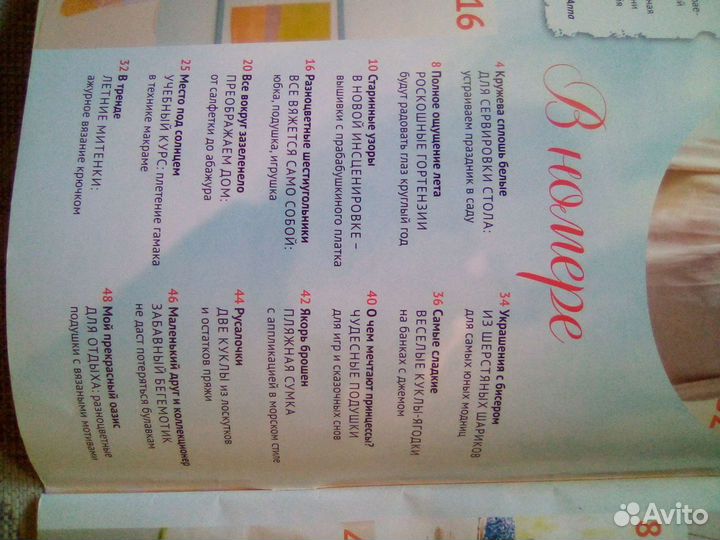 16
рае-
ная
ой
ни
ия
Анна
В номере
4 Кружева сплошь белые
ДЛЯ СЕРВИРОВКИ СТОЛА:
устраиваем праздник в саду
8 Полное ощущение лета
РОСКОШНЫЕ ГОРТЕНЗИИ
будут радовать глаз круглый год
10 Старинные узоры
В НОВОЙ ИНСЦЕНИРОВКЕ –
вышивки с прабабушкиного платка
16 Разноцветные шестиугольники
ВСЕ ВЯЖЕТСЯ САМО СОБОЙ:
юбка, подушка, игрушка
20 Все вокруг зазеленело
ПРЕОБРАЖАЕМ ДОМ:
от салфетки до абажура
25 Место под солнцем
УЧЕБНЫЙ КУРС: плетение гамака
в технике макраме
32 В тренде
ЛЕТНИЕ МИТЕНКИ:
ажурное вязание крючком
34 Украшения с бисером
ИЗ ШЕРСТЯНЫХ ШАРИКОВ
для самых юных модниц
36 Самые сладкие
ВЕСЕЛЫЕ КУКЛЫ-ЯГОДКИ
на банках с джемом
40 О чем мечтают принцессы?
ЧУДЕСНЫЕ ПОДУШКИ
для игр и сказочных снов
42 Якорь брошен
ПЛЯЖНАЯ СУМКА
с аппликацией в морском стиле
44 Русалочки
ДВЕ КУКЛЫ из лоскутков
и остатков пряжи
46 Маленький друг и коллекционер
ЗАБАВНЫЙ БЕГЕМОТИК
не даст потеряться булавкам
48 Мой прекрасный оазис
ДЛЯ ОТДЫХА: разноцветные
подушки с вязаными мотивами
8
Avito